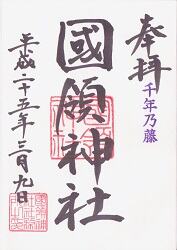 奉拝
千年乃藤
國領神社
平成二十五年三月九日